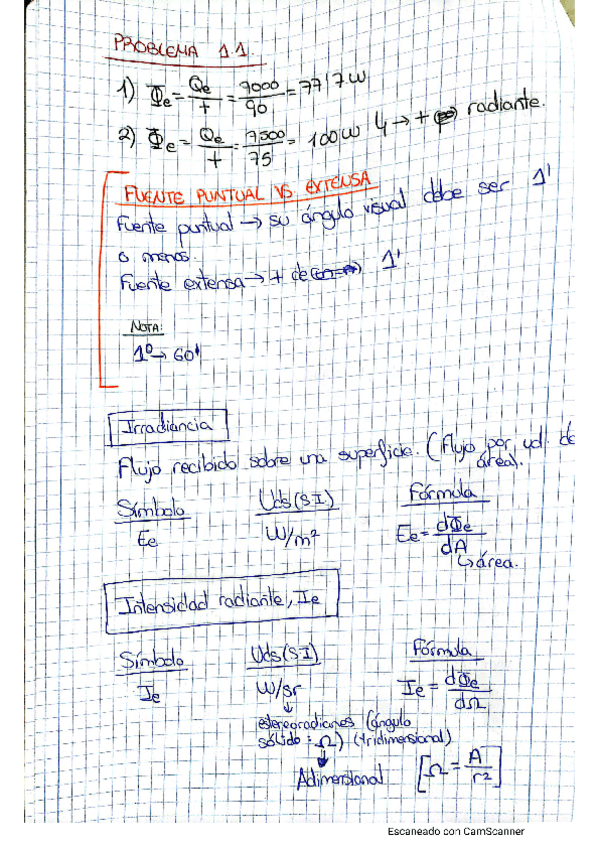 PROBLEMA 1.1.
1) Φe = Qe/t = 7000/90 = 77'7 W
2) Φe = Qe/t = 7500/75 = 100 W ↳ → + radiante.
FUENTE PUNTUAL VS EXTENSA
Fuente puntual → su ángulo visual debe ser 1'
o menos.
Fuente extensa → + de 1'
NOTA:
1º → 60'
Irradiancia
Flujo recibido sobre una superficie. (Flujo por ud. de
área).
Símbolo Uds (S.I.) Fórmula
Ee W/m² Ee = dΦe/dA
↳ área.
Intensidad radiante, Ie
Símbolo Uds (S.I) Fórmula
Ie W/sr Ie = dΦe/dΩ
↓
estereoradianes (ángulo
sólido: Ω) (tridimensional)
↓
Adimensional [Ω = A/r²]
Escaneado con CamScanner